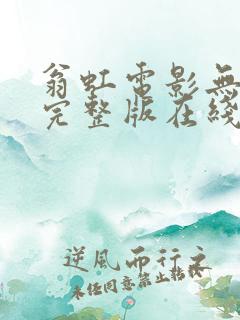 翁虹電影無
完整版在綫
逆風而行之
未经同意禁止转载